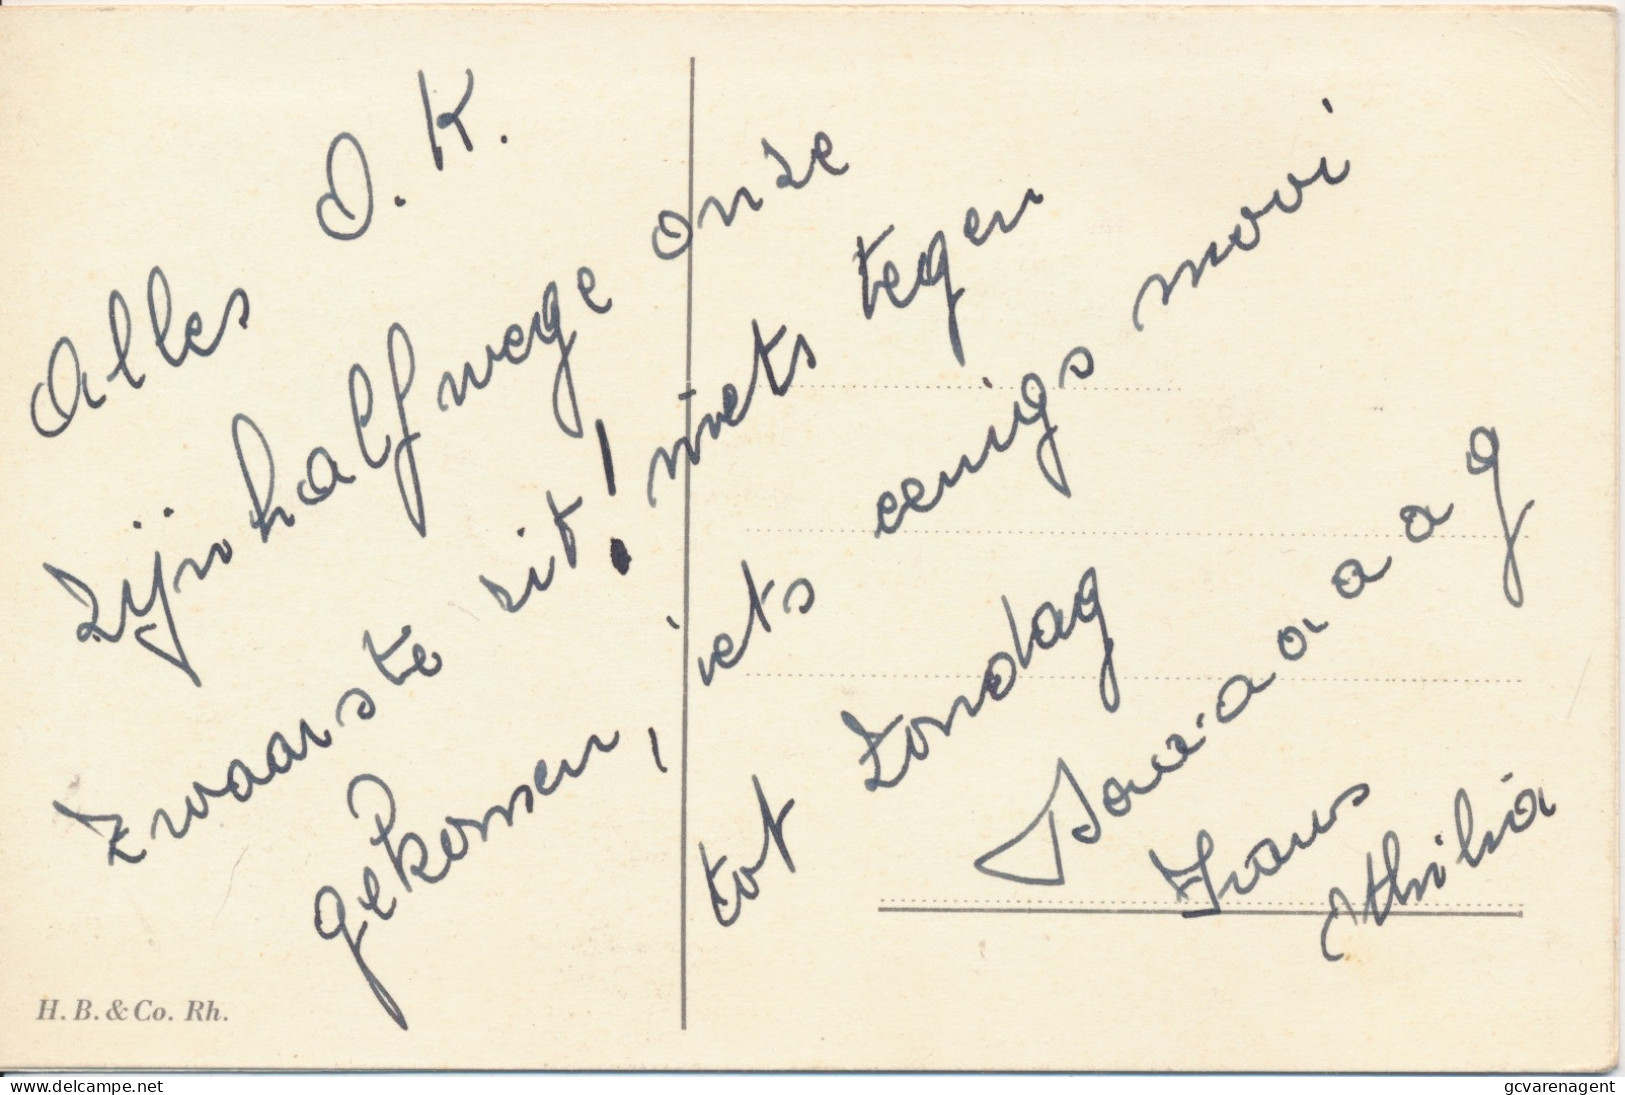 Alles O.K.
Zijn halfwege onze
zwaarste rit! niets tegen
gekomen, iets eenigs mooi
tot Zondag
Daa-a-a-a-a-a-g
Frans
H. B. & Co. Rh.
www.delcampe.net
gcvarenagent